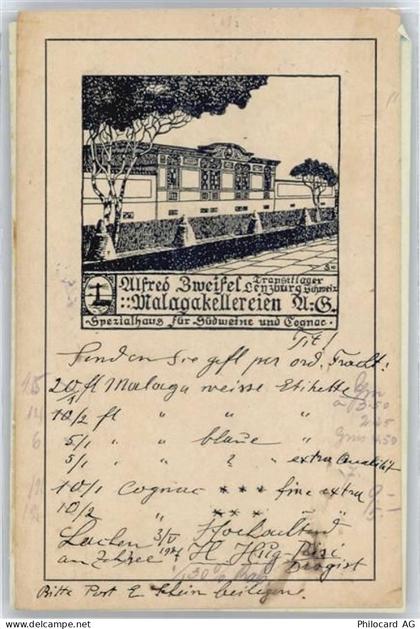 Alfred Zweifel Transitlager
Lenzburg Schweiz
::Malagakellereien A:G.
·Spezialhaus für Südweine und Cognac·
Tit!
Senden Sie gefl per ord. Fracht:
20/1 fl Malaga weisse Etikette
10/2 fl " " "
5/1 " " blaue "
5/1 " " ? " extra Qualität
10/1 Cognac * * * fine extra
10/2 " * * * "
Lachen 3/V Hochachtend
am Zchsee 1927 H. Hug-
Drogist
Bitte Post E Schein beilegen.
www.philocard.com Copyright Philocard AG